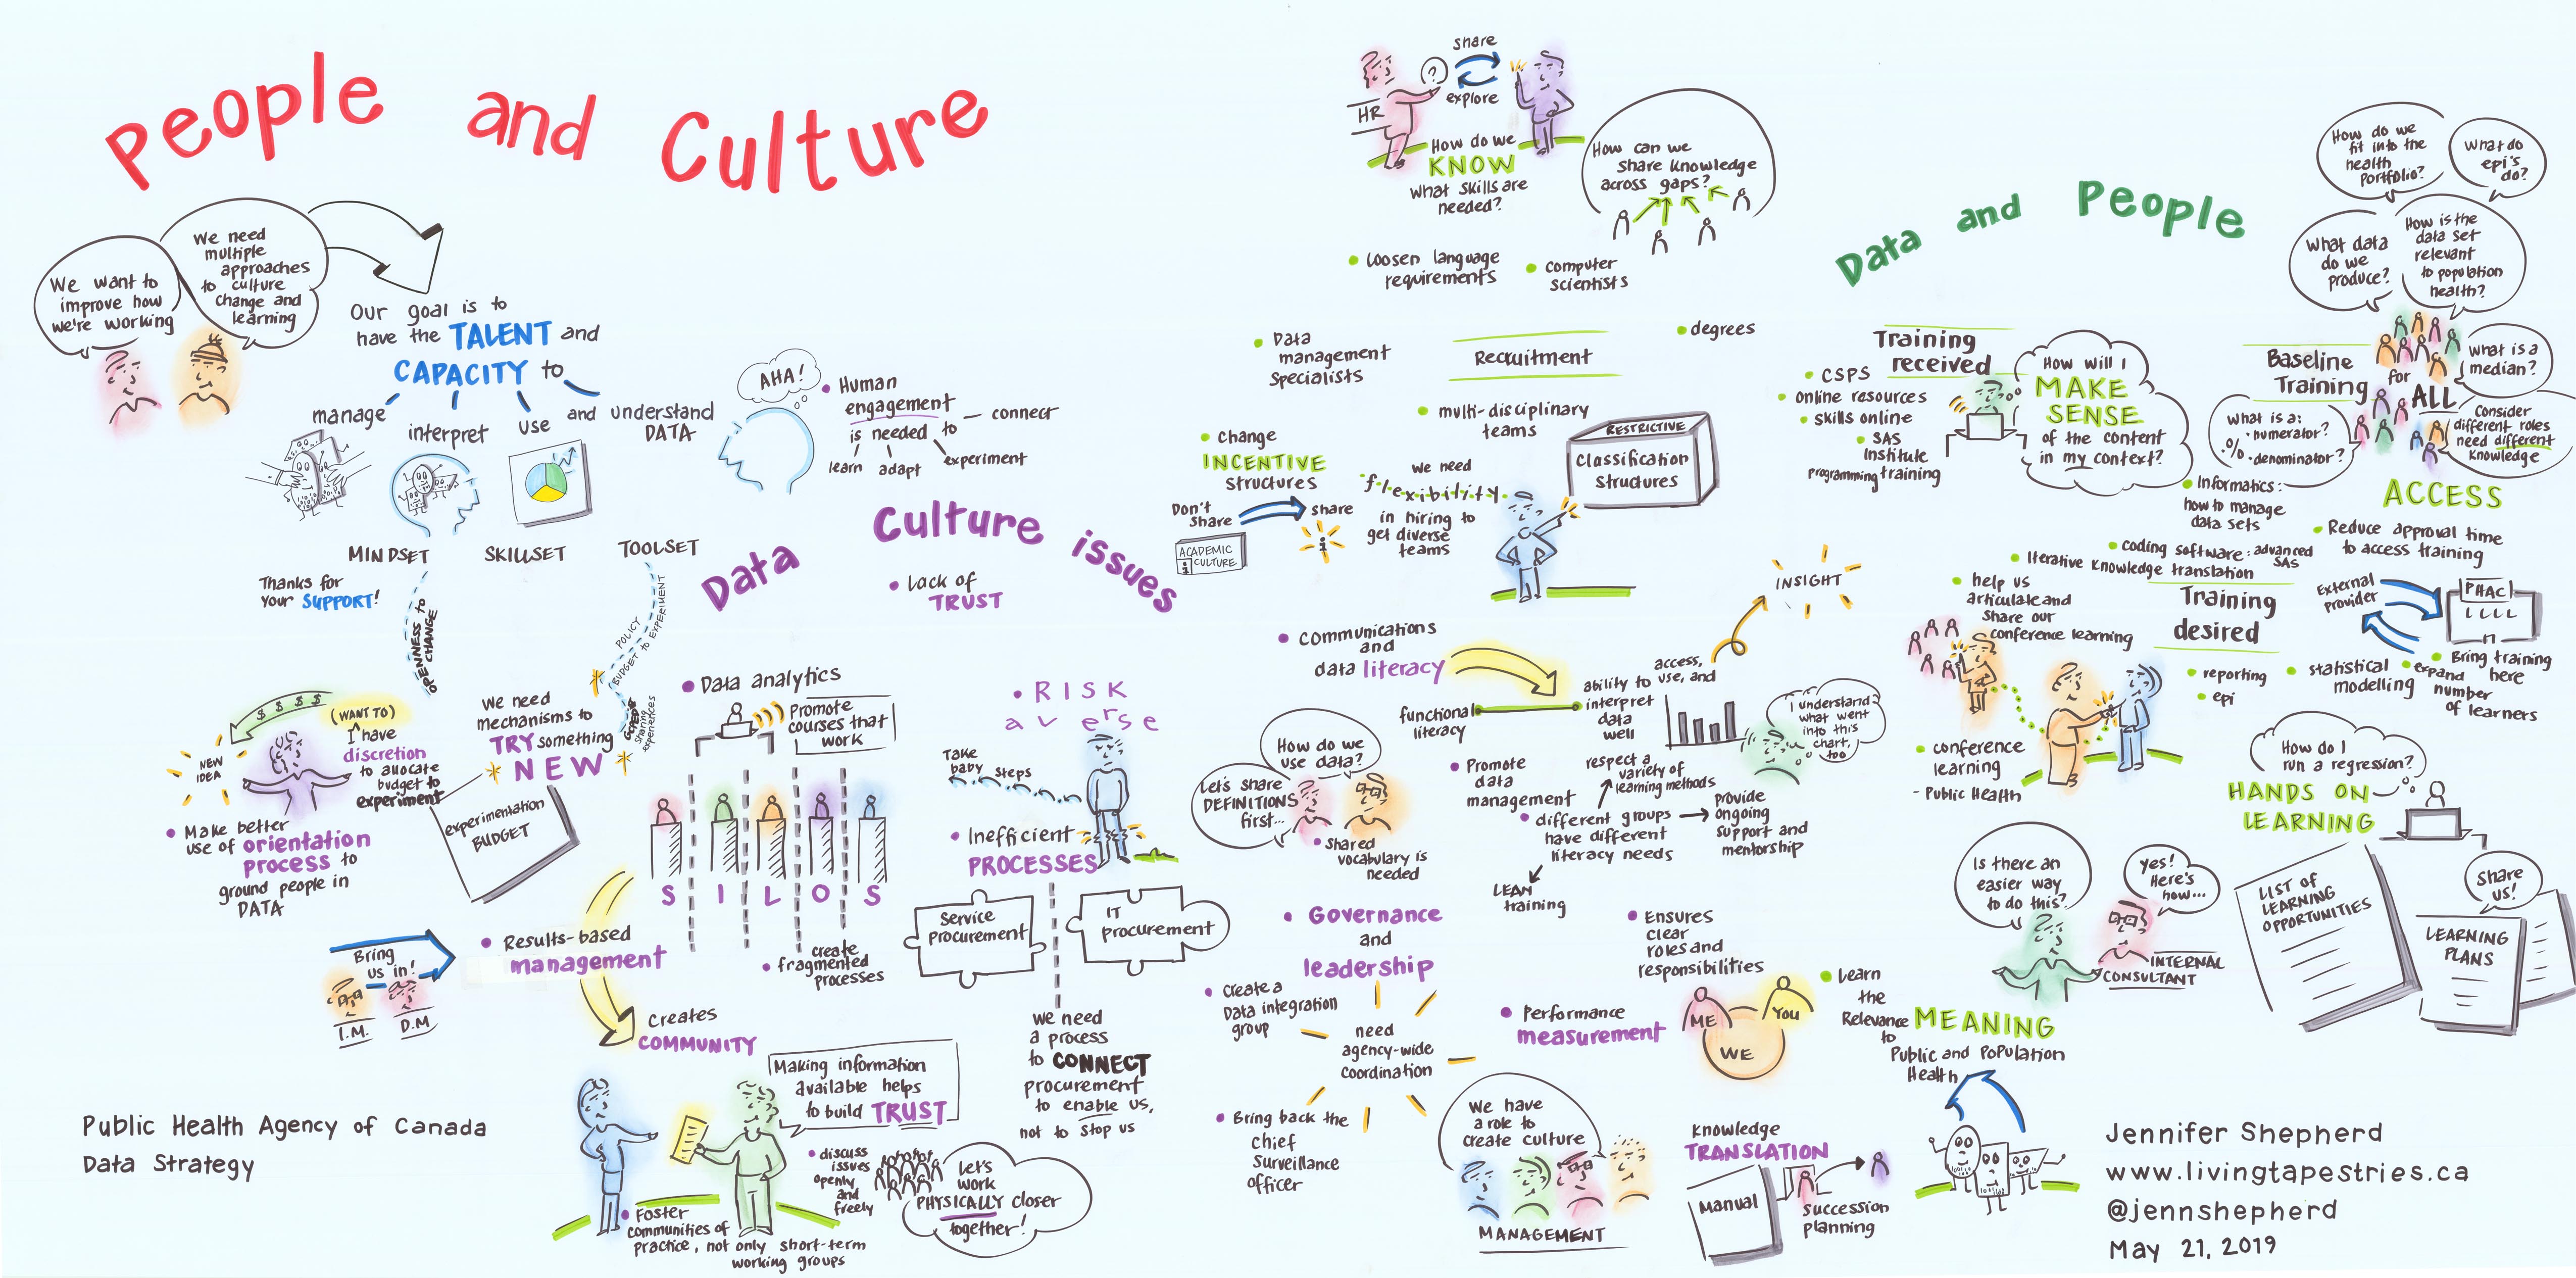 People and Culture
We want to
improve how
we're working
We need
multiple
approaches
to culture
change and
learning
Our goal is to
have the TALENT and
CAPACITY to
manage
interpret
use
and
understand
DATA
AHA!
Human
engagement
is needed to
connect
learn
adapt
experiment
MINDSET
SKILLSET
TOOLSET
Thanks for
your SUPPORT!
OPENNESS to
CHANGE
POLICY
BUDGET to EXPERIMENT
sharing
experiences
$ $ $ $
NEW
IDEA
(WANT TO)
I have
discretion
to allocate
budget to
experiment
We need
mechanisms to
TRY something
NEW
experimentation
BUDGET
Make better
use of orientation
process to
ground people in
DATA
Bring
us in!
I.M.
D.M
Results-based
management
Creates
COMMUNITY
Making information
available helps
to build TRUST
discuss
issues
openly
and
freely
Let's
work
PHYSICALLY closer
together!
Foster
communities of
practice, not only short-term
working groups
Public Health Agency of Canada
Data Strategy
Data Culture issues
Lack of
TRUST
Data analytics
Promote
courses that
work
SILOS
create
fragmented
processes
RISK
averse
Take
baby steps
Inefficient
PROCESSES
Service
procurement
IT
procurement
We need
a process
to CONNECT
procurement
to enable us,
not to stop us
Communications
and
data literacy
functional
literacy
ability to
access,
use, and
interpret
data
well
INSIGHT
I understand
what went
into this
chart,
too
How do we
use data?
Let's share
DEFINITIONS
first...
Shared
vocabulary is
needed
Promote
data
management
respect a
variety of
learning methods
different groups
have different
literacy needs
Provide
ongoing
support and
mentorship
LEAN
training
Governance
and
leadership
Create a
Data integration
group
need
agency-wide
coordination
Bring back the
chief
surveillance
officer
Ensures
clear
roles and
responsibilities
Performance
measurement
ME
YOU
WE
We have
a role to
create culture
MANAGEMENT
Knowledge
TRANSLATION
Manual
succession
planning
HR
?
share
explore
How do we
KNOW
what skills are
needed?
How can we
share knowledge
across gaps?
Loosen language
requirements
computer
scientists
Data
management
Specialists
Recruitment
degrees
multi-disciplinary
teams
change
INCENTIVE
structures
Don't
share
share
i
ACADEMIC
CULTURE
i
we need
flexibility
in hiring to
get diverse
teams
RESTRICTIVE
Classification
structures
Data and People
Training
received
CSPS
online resources
skills online
SAS
Institute
programming training
How will I
MAKE
SENSE
of the content
in my context?
How do we
fit into the
health
portfolio?
What do
epi's
do?
What data
do we
produce?
How is the
data set
relevant
to population
health?
Baseline
Training
for
ALL
What is a
median?
What is a:
numerator?
%
denominator?
Consider
different roles
need different
knowledge
Informatics:
how to manage
data sets
ACCESS
Reduce approval time
to access training
coding software: advanced
SAS
Iterative knowledge translation
help us
articulate and
share our
conference learning
Training
desired
External
provider
PHAC
Bring training
here
reporting
epi
statistical
modelling
expand
number
of learners
conference
learning
- Public Health
How do I
run a regression?
HANDS ON
LEARNING
Is there an
easier way
to do this?
yes!
Here's
how...
INTERNAL
CONSULTANT
LIST OF
LEARNING
OPPORTUNITIES
share
us!
LEARNING
PLANS
Learn
the
Relevance
to
MEANING
Public and Population
Health
Jennifer Shepherd
www.livingtapestries.ca
@jennshepherd
May 21, 2019